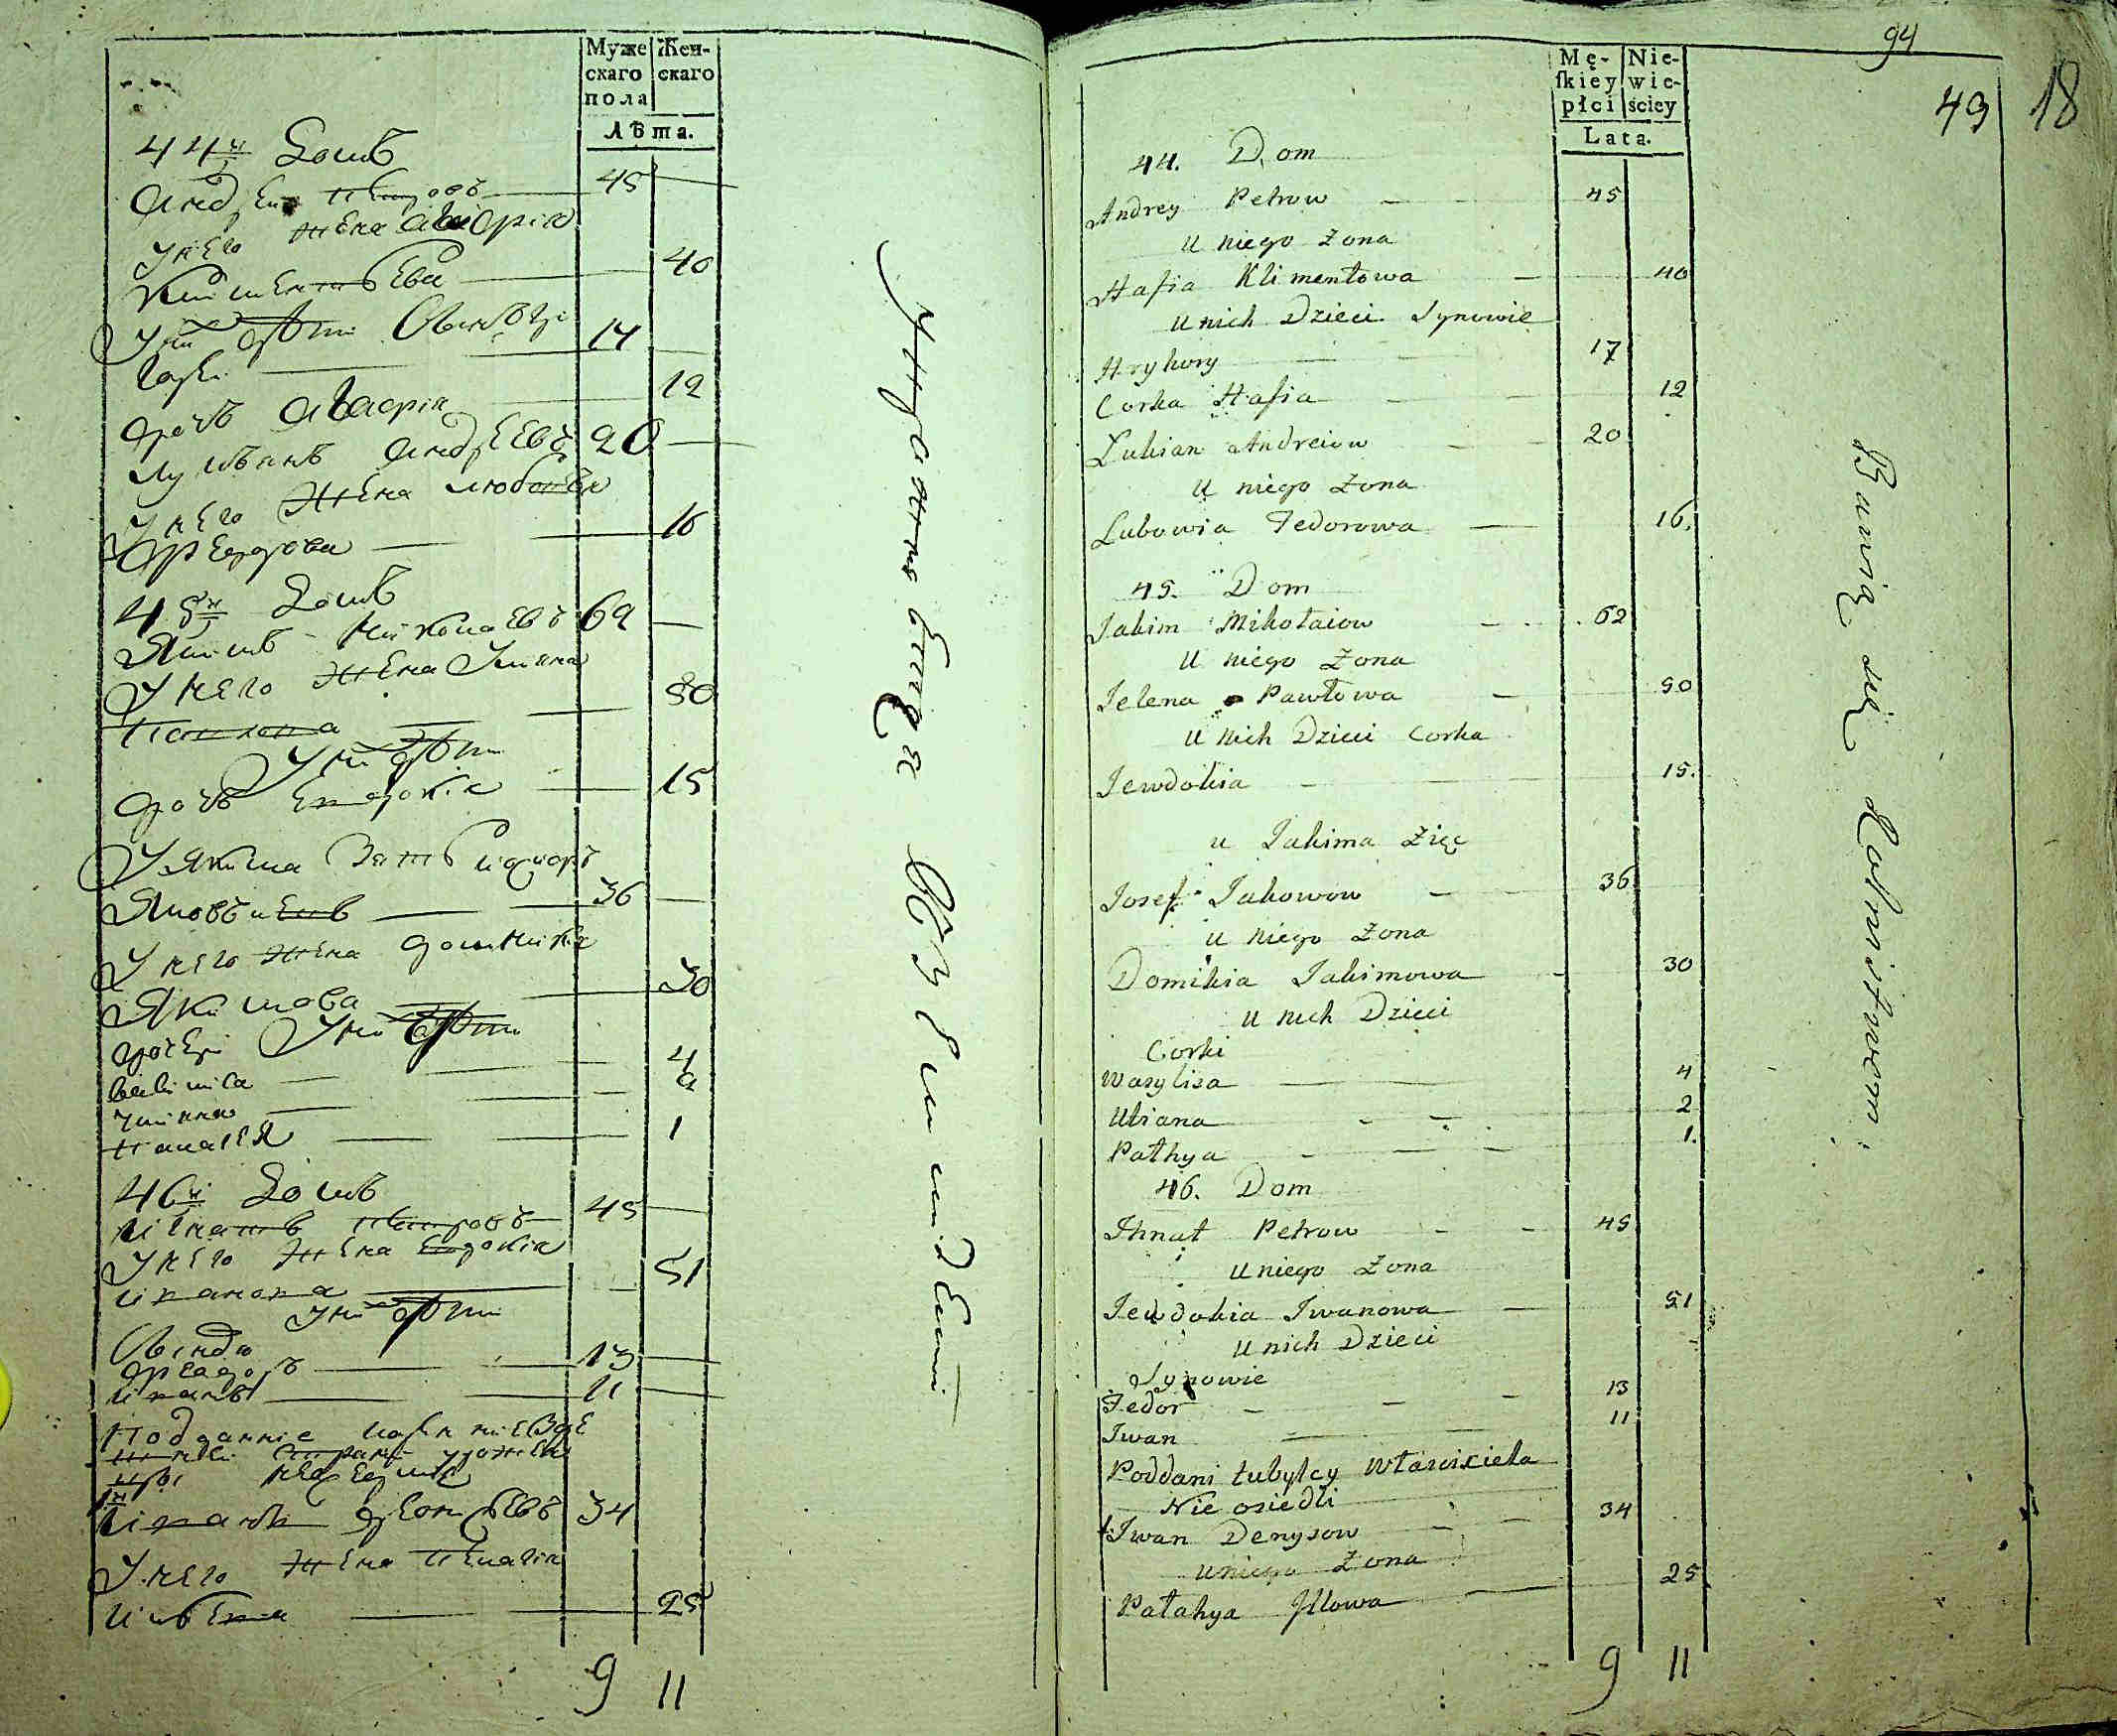 Муже
скаго
пола
Жен-
скаго
Лѣта.
44й Домъ
Андрей Петровъ 45
У него жена Агафія
Климентьева 40
У них дѣти Сыновъя
17
дочь Агафія 12
Лукьянъ Андреевъ 20
У него Жена Любовья
Федорова 16
45й Домъ
Якимъ Николаевъ 62
У него Жена Ульяна
50
У них дѣти
дочь Евдокія 15
У Якима Зять
36
У него Жена Домникія
Якимова 30
У них дѣти
дочери
Василиса 4
Ульяна 2
Палагея 1
46й Домъ
Игнатъ Петровъ 45
У него Жена Евдокія
Иванова 51
У них дѣти
Федоръ 13
Иванъ 11
Подданніе
Иванъ Денисьевъ 34
У него Жена Пелагія
Ильева 25
9 11
94
49 18
Mę-
ſkiey
płci
Nie-
wie-
ściey
Lata.
44. Dom
Andrey Petrow 45
U niego Zona
Hafia Klimentowa 40
U nich Dzieci Synowie
Hryhory 17
Corka Hafia 12
Lukian Andreiow 20
U niego Zona
Lubowia Fedorowa 16.
45. Dom
Jakim Mikołaiow 62
U niego Zona
Jelena Pawłowa 50
U nich Dzieci Corka
Jewdokia 15.
u Jakima Zięć
Josef Jakowow 36
U niego Zona
Domikia Jakimowa 30
U nich Dzieci
Corki
Wasylisa 4
Uliana 2
Pałhya 1.
46. Dom
Ihnat Petrow 45
U niego Zona
Jewdokia Iwanowa 51
U nich Dzieci
Synowie
Fedor 13
Iwan 11
Poddani tubylcy Własciciela
Nie osiedli
Iwan Denysow 34
U niego Zona
Pałahya Jllowa 25
9 11
Bawią się Rolnictwem.